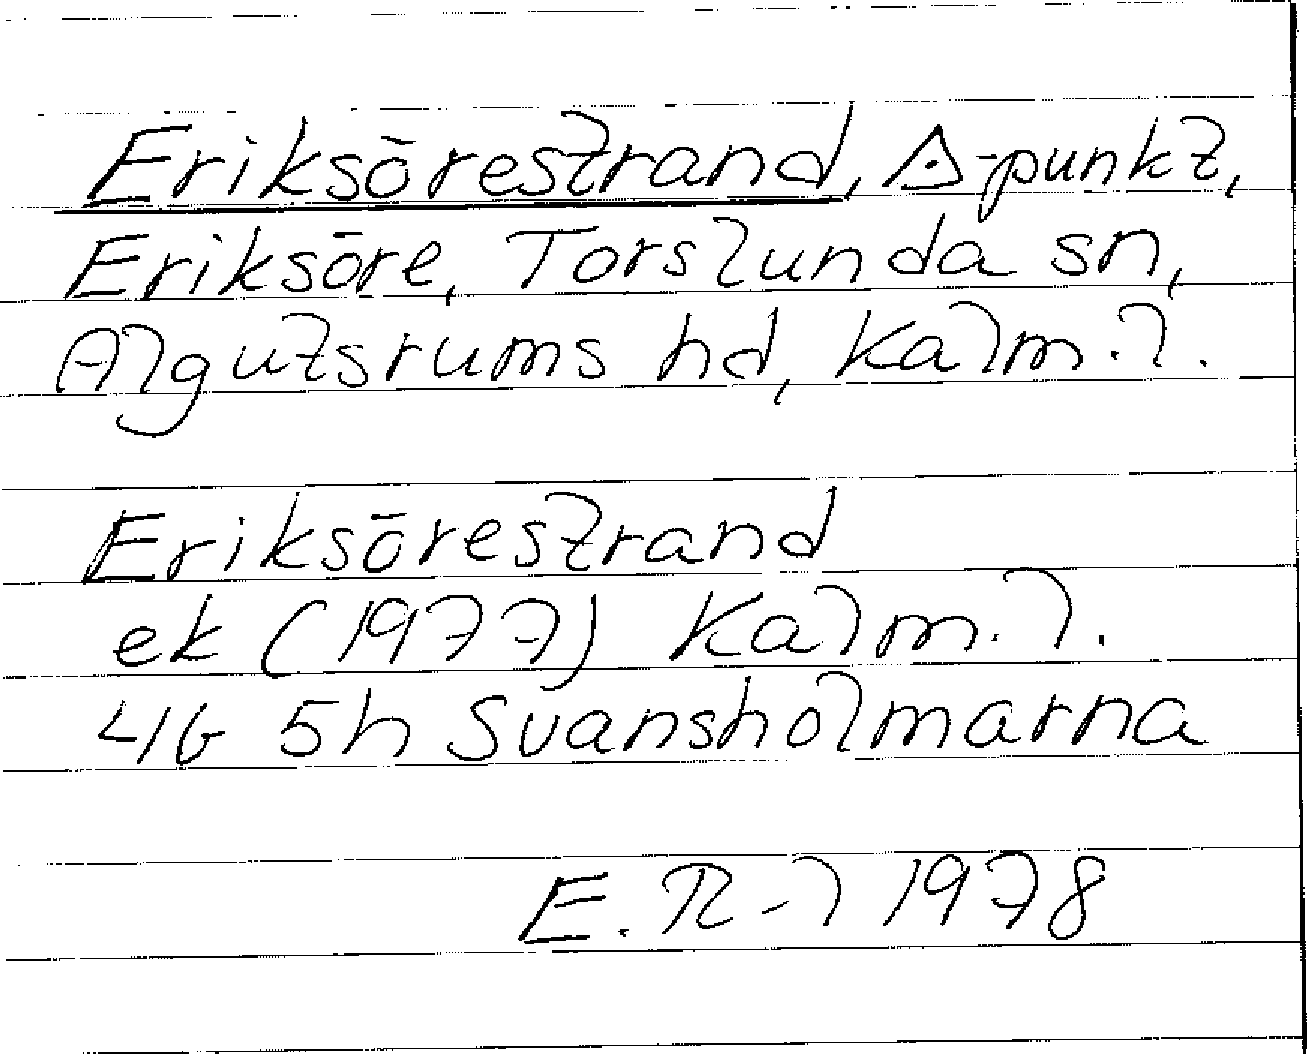 Eriksörestrand, △-punkt,
Eriksöre, Torslunda sn,
Algutsrums hd, Kalm.l.
Eriksörestrand
ek (1977) Kalm.l.
4G 5h Svansholmarna
E. R-l 1978